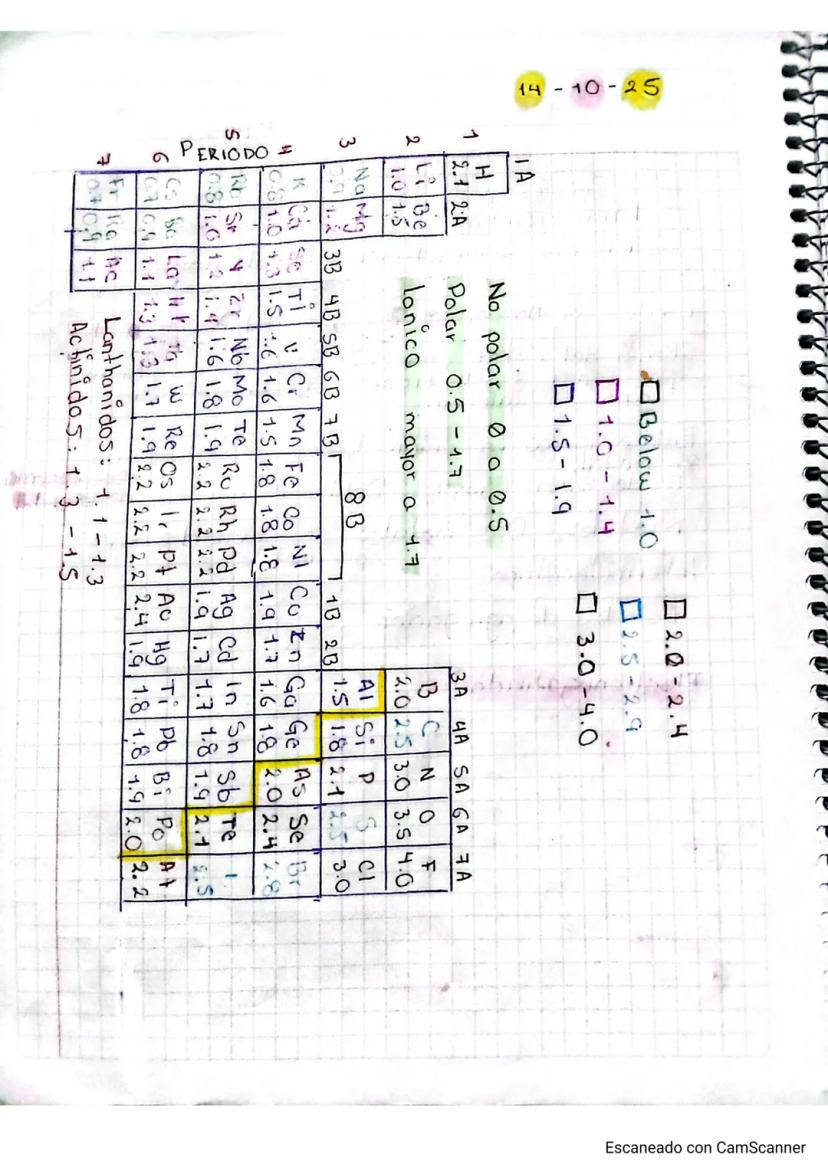 14 - 10 - 25
Below 1.0
1.0 - 1.4
1.5 - 1.9
2.0 - 2.4
2.5 - 2.9
3.0 - 4.0
No polar 0 a 0.5
Polar 0.5 - 1.7
Ionico mayor a 1.7
PERIODO
1A 2A 3B 4B 5B 6B 7B 8B 1B 2B 3A 4A 5A 6A 7A
1 H
2.1
2 Li Be B C N O F
1.0 1.5 2.0 2.5 3.0 3.5 4.0
3 Na Mg Al Si P S Cl
0.9 1.2 1.5 1.8 2.1 2.5 3.0
4 K Ca Sc Ti V Cr Mn Fe Co Ni Cu Zn Ga Ge As Se Br
0.8 1.0 1.3 1.5 1.6 1.6 1.5 1.8 1.8 1.8 1.9 1.7 1.6 1.8 2.0 2.4 2.8
5 Rb Sr Y Zr Nb Mo Te Ru Rh Pd Ag Cd In Sn Sb Te I
0.8 1.0 1.2 1.4 1.6 1.8 1.9 2.2 2.2 2.2 1.9 1.7 1.7 1.8 1.9 2.1 2.5
6 Cs Ba La Hf Ta W Re Os Ir Pt Au Hg Ti Pb Bi Po At
0.7 0.9 1.1 1.3 1.3 1.7 1.9 2.2 2.2 2.2 2.4 1.9 1.8 1.8 1.9 2.0 2.2
7 Fr Ra Ac
0.7 0.9 1.1
Lanthanidos: 1.1 - 1.3
Actinidos: 1.3 - 1.5
Escaneado con CamScanner